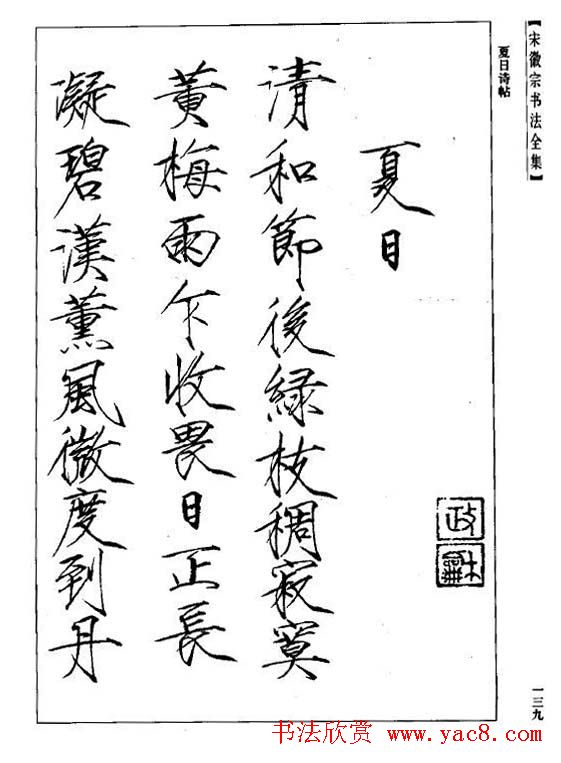 【宋徽宗书法全集】
夏日诗帖
夏日
清和節後緑枝稠寂寞
黄梅雨乍收畏日正長
凝碧漢薰風微度到丹
政
龢
一三九
书法欣赏 www.yac8.com